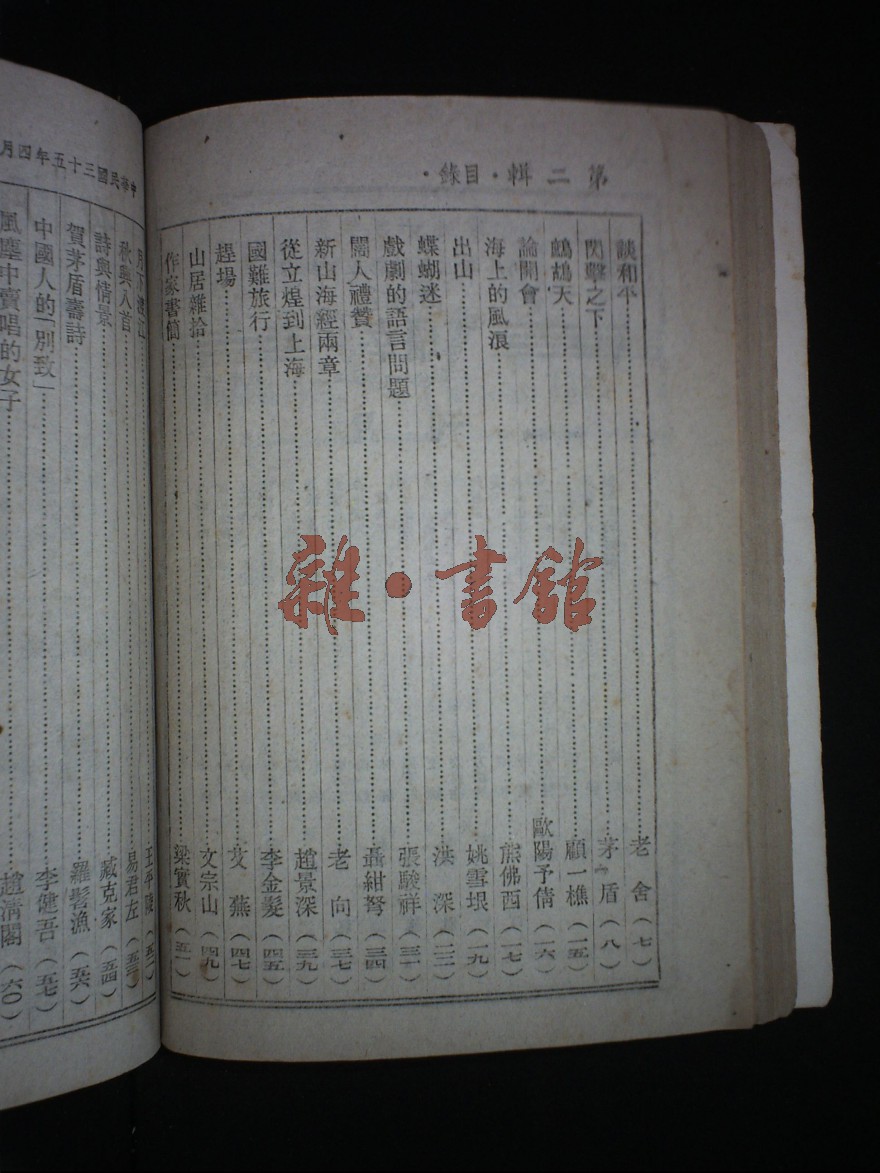 第二輯·目錄·
談和平 老舍(七)
閃擊之下 茅盾(八)
鷓鴣天 顧一樵(一五)
論開會 歐陽予倩(一六)
海上的風浪 熊佛西(一七)
出山 姚雪垠(一九)
蝶蝴迷 洪深(二二)
戲劇的語言問題 張駿祥(三一)
闊人禮贊 聶紺弩(三四)
新山海經兩章 老向(三七)
從立煌到上海 趙景深(三九)
國難旅行 李金髮(四五)
趕場 艾蕪(四七)
山居雜拾 文宗山(四九)
作家書簡 梁實秋(五一)
雜·書館
中華民國三十五年四月
王平陵
秋興八首 易君左(五三)
詩與情景 臧克家(五四)
賀茅盾壽詩 羅髫漁(五六)
中國人的「別致」 李健吾(五七)
風塵中賣唱的女子 趙清閣(六〇)